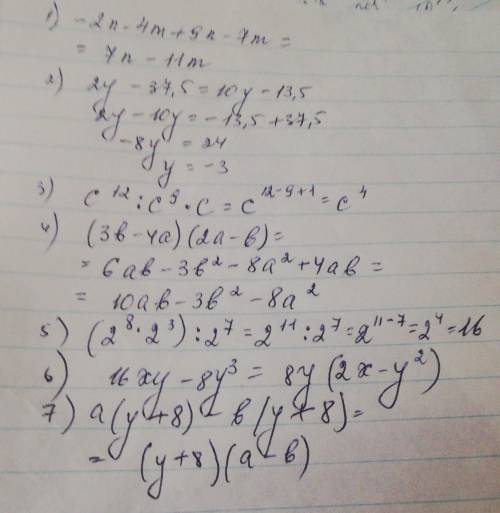 1) -2n-4m+9n-7m=
= 7n-11m
2) 2y-37,5=10y-13,5
2y-10y=-13,5+37,5
-8y=24
y=-3
3) c¹²:c⁹·c=c¹²⁻⁹⁺¹=c⁴
4) (3b-4a)(2a-b)=
=6ab-3b²-8a²+4ab=
=10ab-3b²-8a²
5) (2⁸·2³):2⁷=2¹¹:2⁷=2¹¹⁻⁷=2⁴=16
6) 16xy-8y³=8y(2x-y²)
7) a(y+8)-b(y+8)=
=(y+8)(a-b)